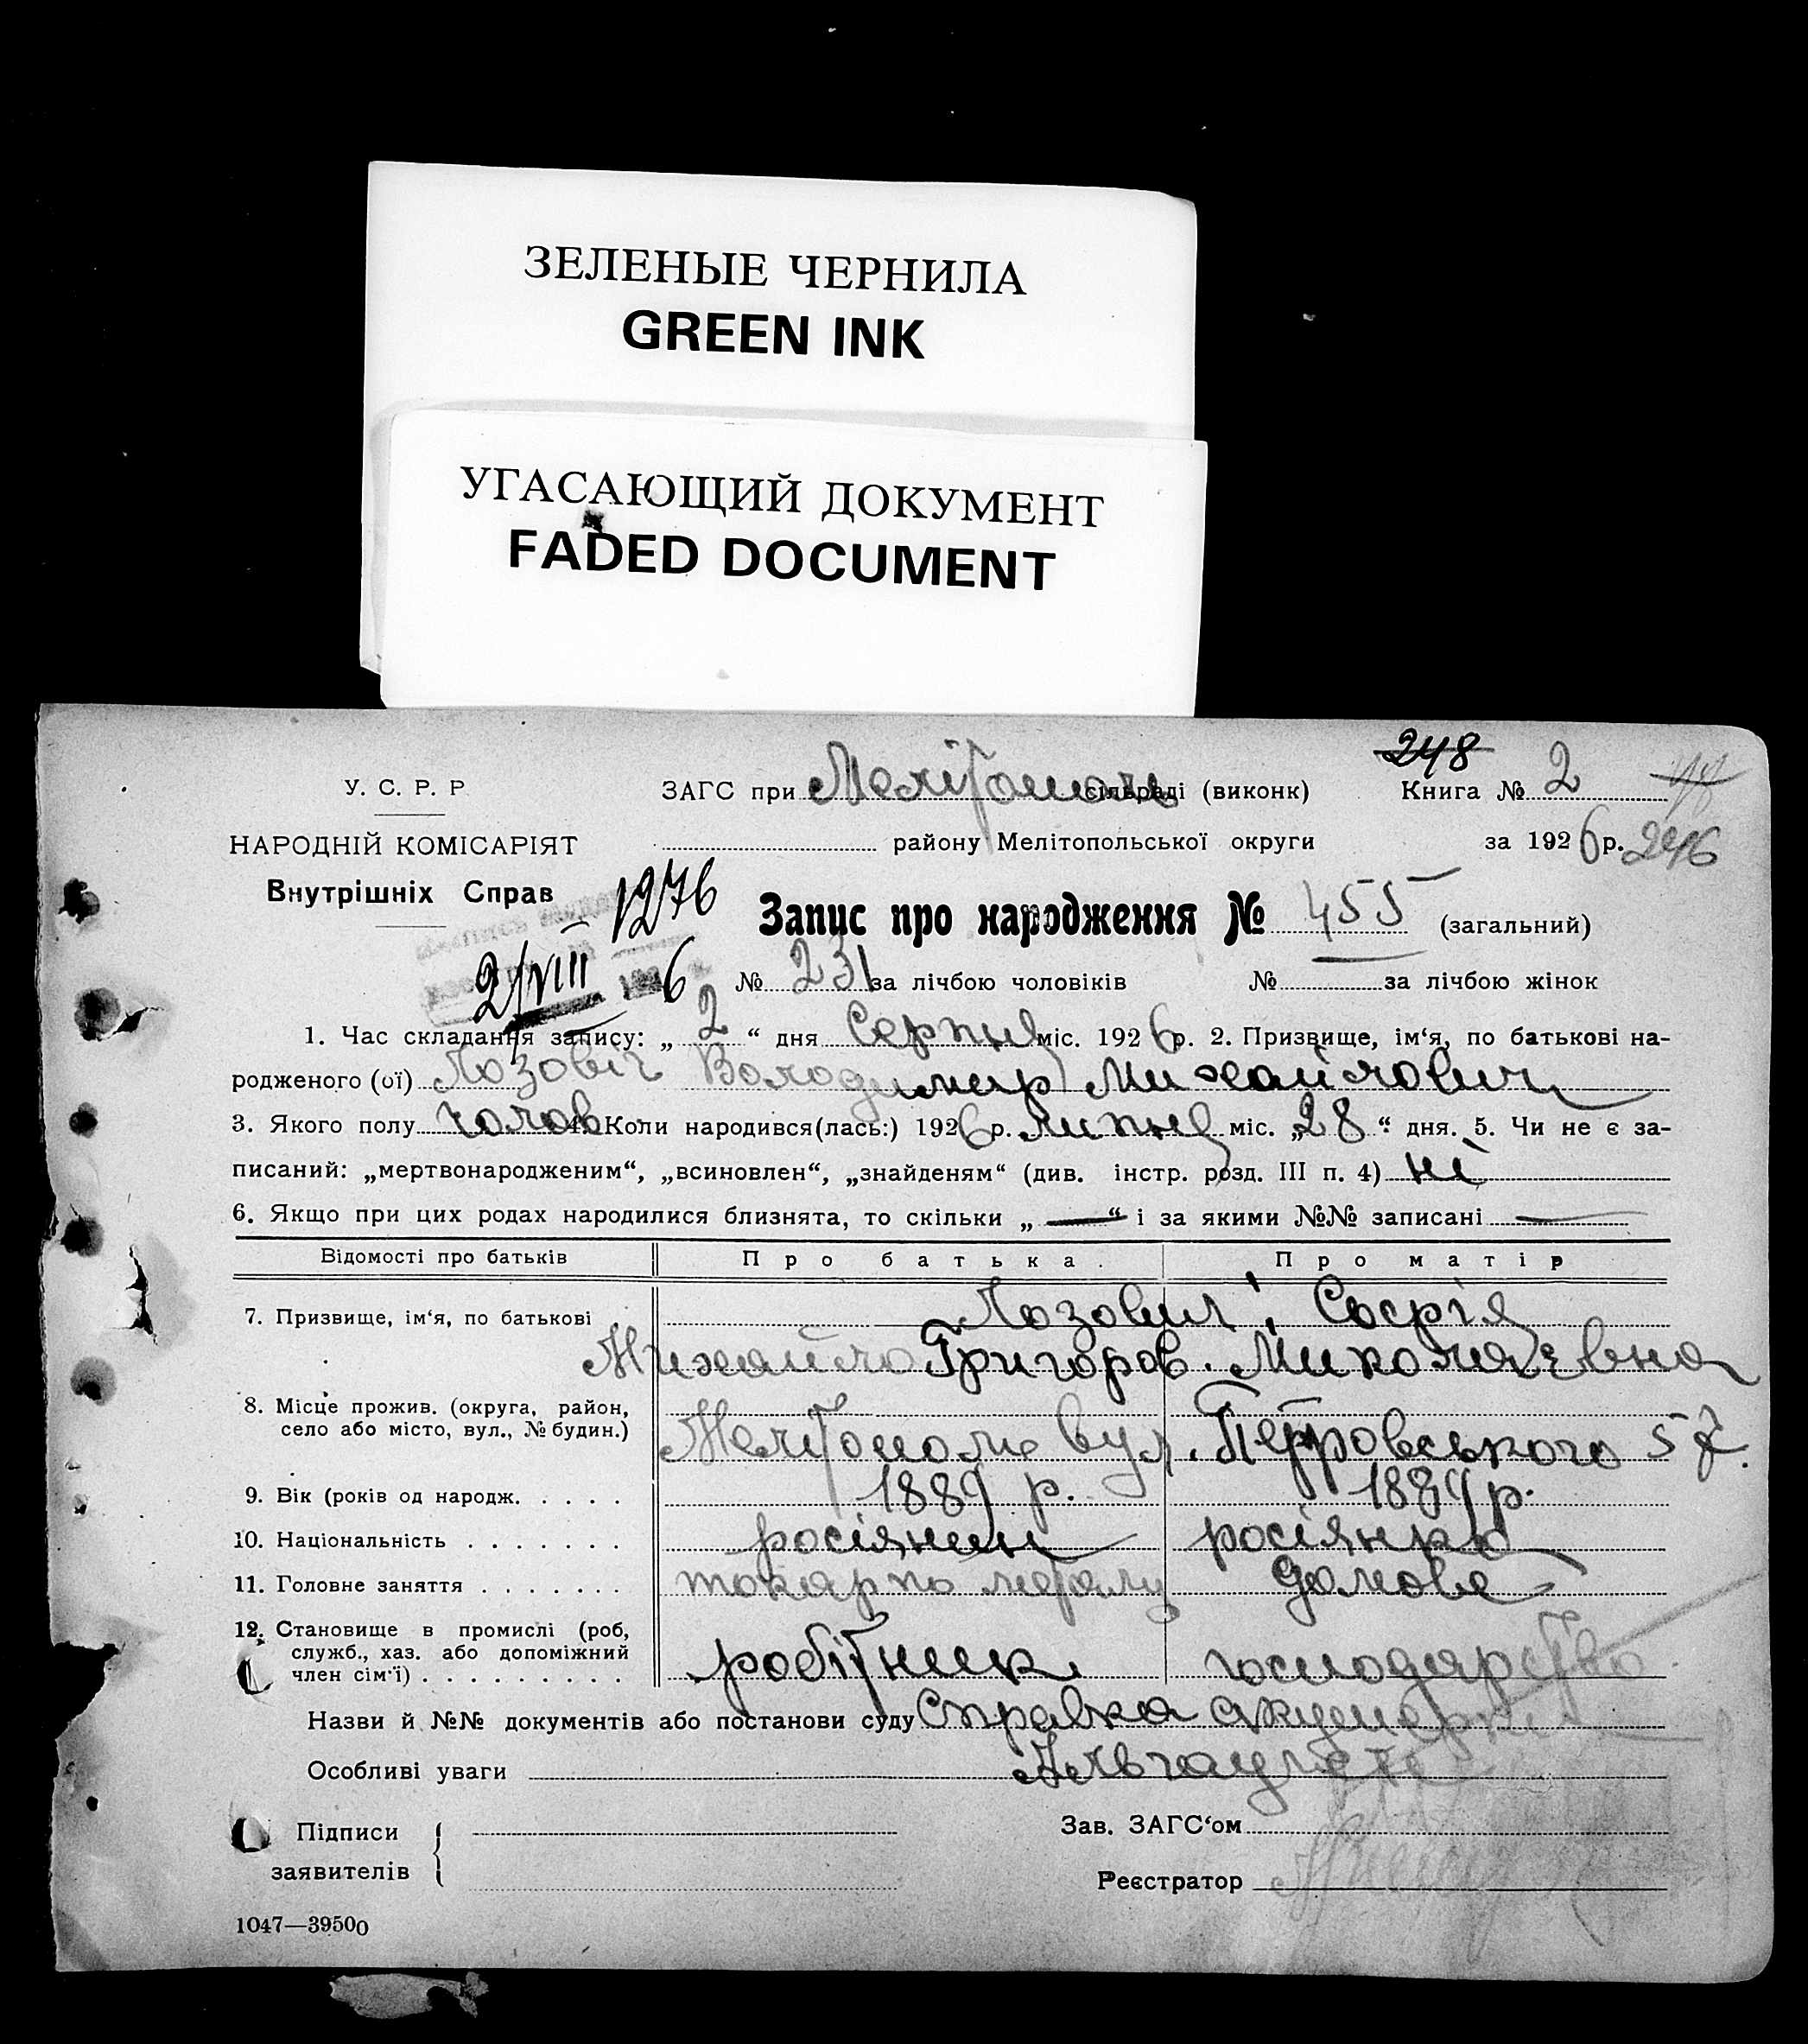 ЗЕЛЕНЫЕ ЧЕРНИЛА
GREEN INK
УГАСАЮЩИЙ ДОКУМЕНТ
FADED DOCUMENT
248
У. С. Р. Р. ЗАГС при Мелітополе сільраді (виконк) Книга № 2
НАРОДНІЙ КОМІСАРІЯТ району Мелітопольської округи за 1926 р. 246
Внутрішніх Справ 1276
Запис про народження № 455 (загальний)
2/VIII 1926 № 231 за лічбою чоловіків № за лічбою жінок
1. Час складання запису: „ 2 “ дня Серпня міс. 1926 р. 2. Призвище, ім‘я, по батькові на-
родженого (ої) Лозовіч Володимир Михайлович
3. Якого полу чолов 4. Коли народився(лась:) 1926 р. липня міс. „28“ дня. 5. Чи не є за-
писаний: „мертвонародженим“, „всиновлен“, „знайденям“ (див. інстр. розд. III п. 4) ні
6. Якщо при цих родах народилися близнята, то скільки „ — “ і за якими №№ записані —
Відомості про батьків Про батька. Про матір
7. Призвище, ім‘я, по батькові Лозович Софія
Михайло Григоров. Миколаєвна
8. Місце прожив. (округа, район,
село або місто, вул., № будин.) Мелітополь вул. Петровського 57.
9. Вік (років од народж. . . . . 1889 р. 1889 р.
10. Національність . . . . . . . росіянин росіянка
11. Головне заняття . . . . . . . токар по металу домове
12. Становище в промислі (роб,
служб., хаз. або допоміжний
член сім‘ї) . . . . . . . . . робітник господарство
Назви й №№ документів або постанови суду Справка акушерки
Особливі уваги
Підписи Зав. ЗАГС‘ом
заявителів Реєстратор
1047—39500